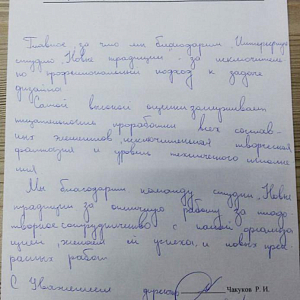 Главное за что мы благодарим Интерьерную
студию „Новые традиции" - за исключительно
профессиональный подход к задаче
дизайна.
Самой высокой оценки заслуживает
тщательность проработки всех составных
элементов, неисчерпаемая творческая
фантазия и уровень технического исполнения.
Мы благодарим команду студии „Новые
традиции за отличную работу, за плодотворное
сотрудничество с нашей организацией,
желаем ей успеха, и новых прекрасных
работ.
С Уважением директор Чакуков Р. И.